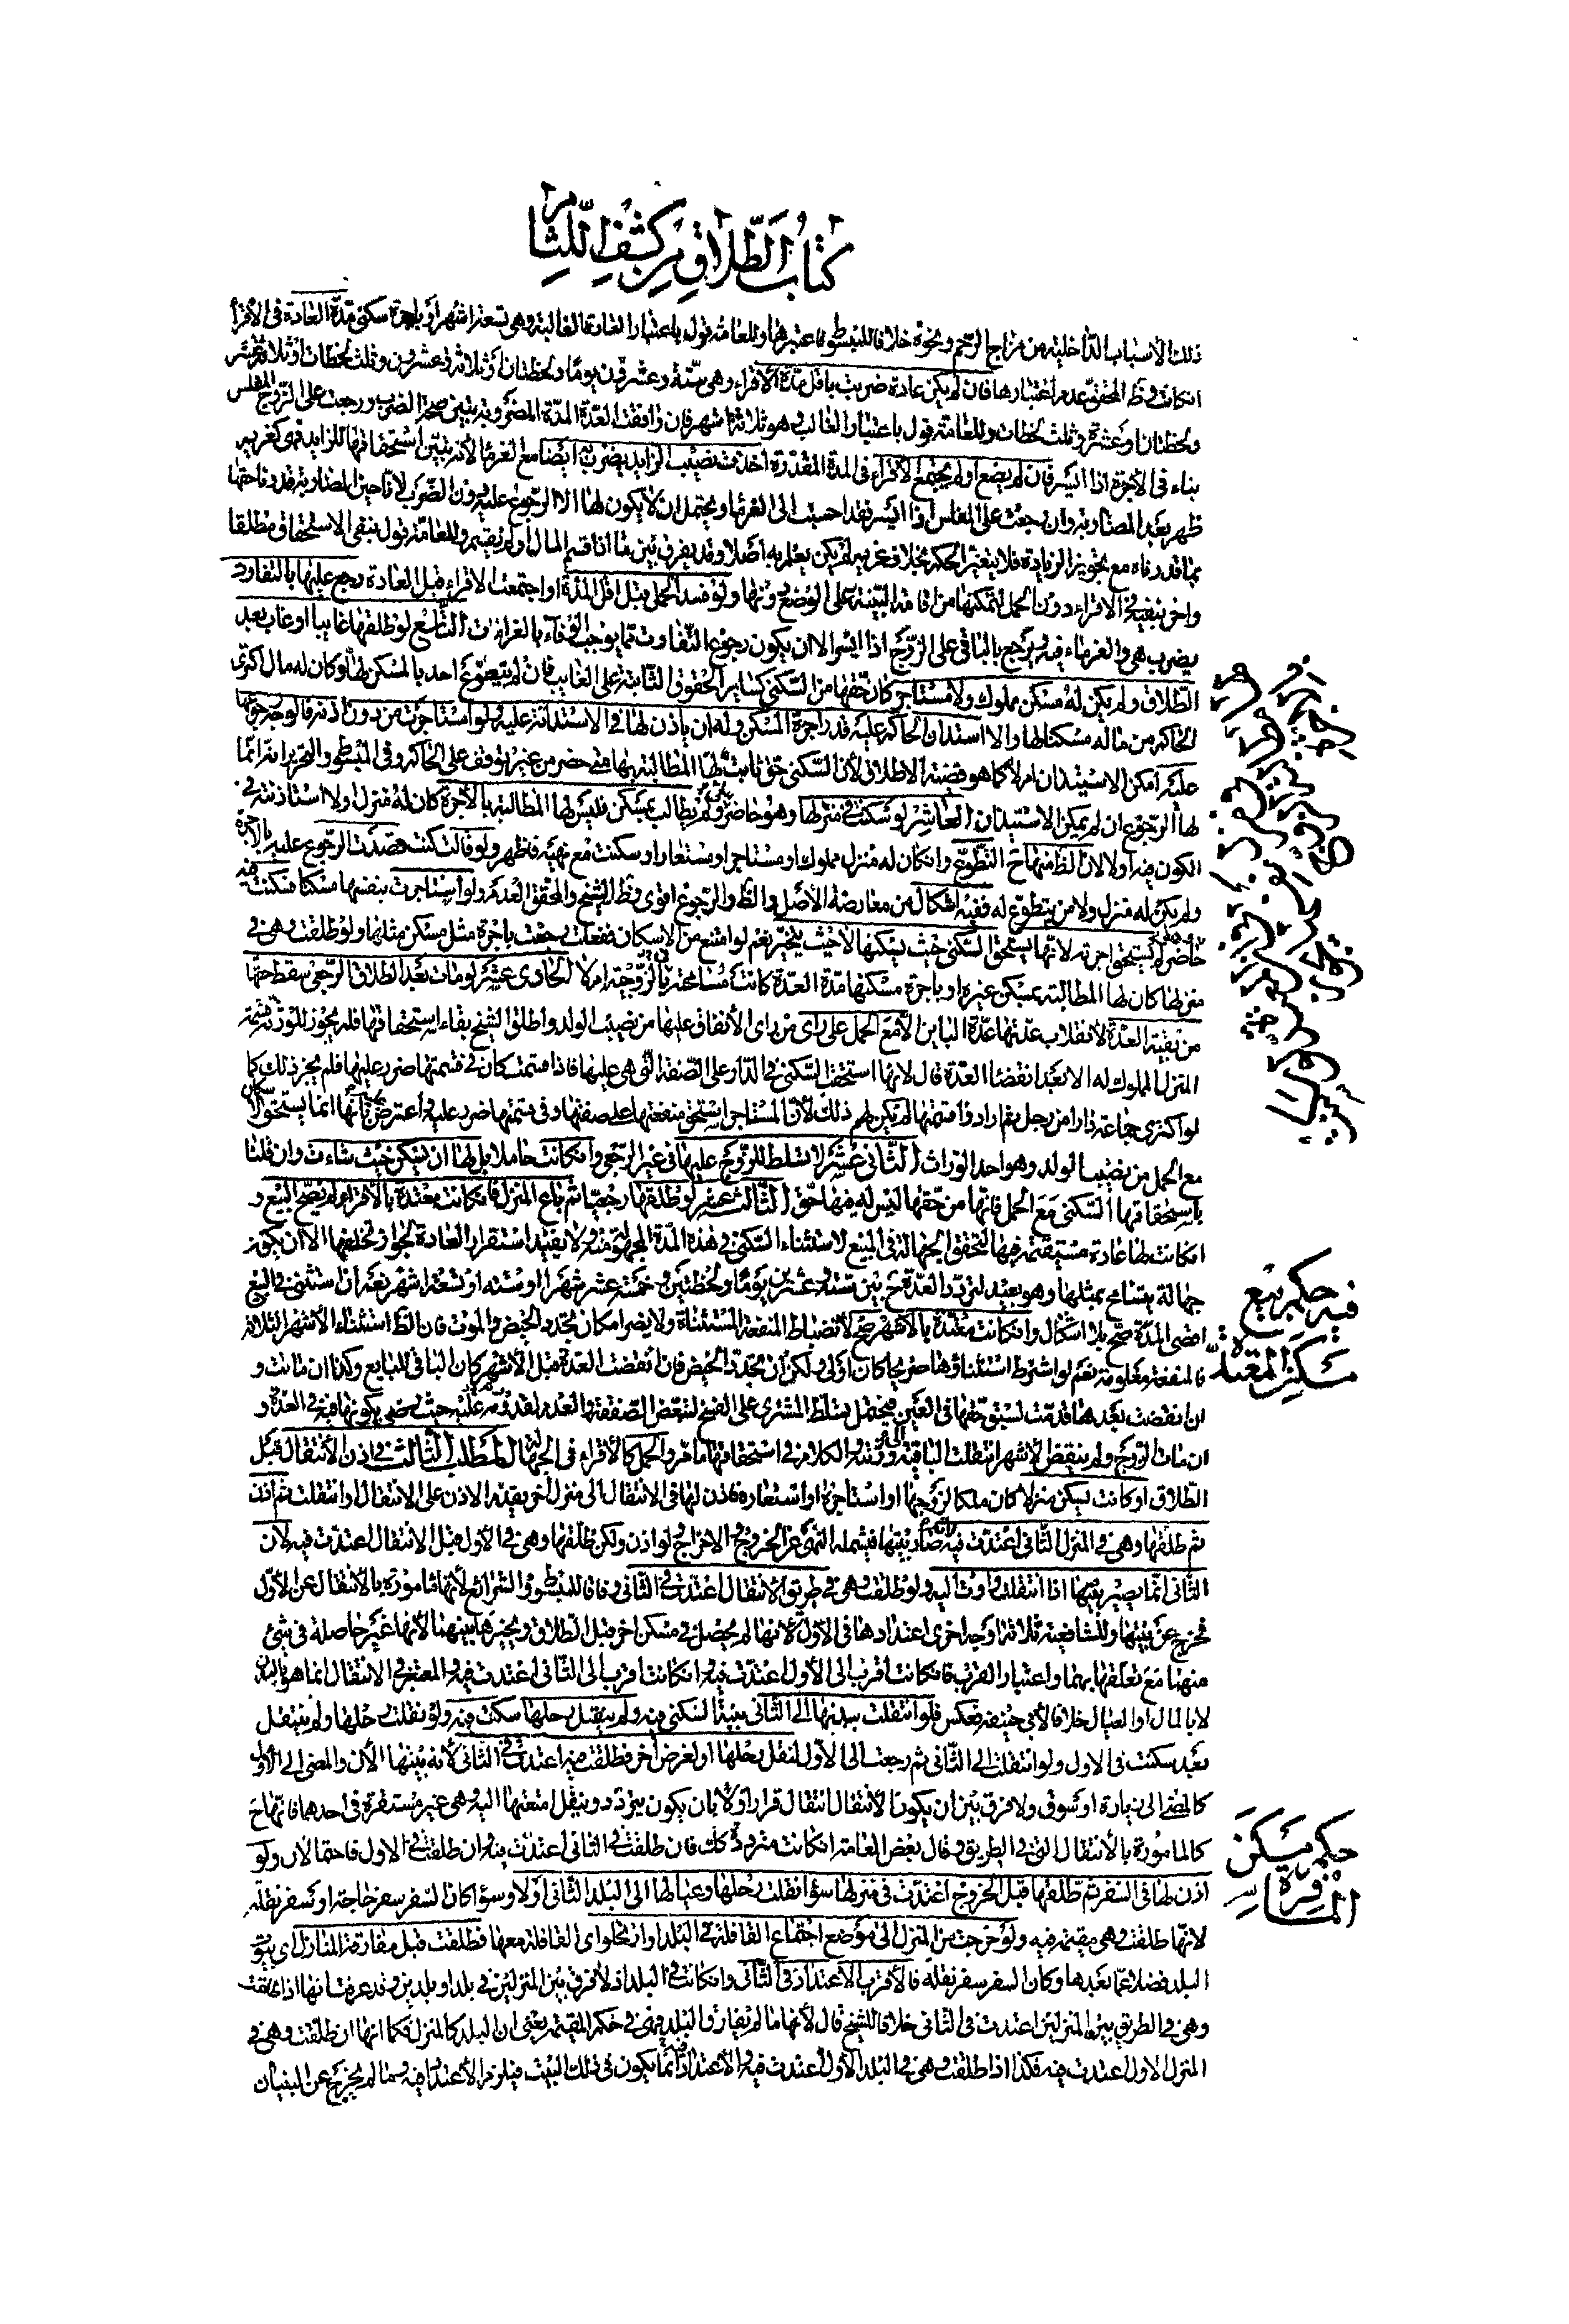 كتاب الطلاق من كشف اللثام
ذلك الأسباب الداخلية من مزاج الرحم ونحوه خلافا للمبسوط فما اعتبرها وللعامة قول باعتبار العادة الغالبة وهي تسعة اشهر أو باجرة سكنى مدة العادة في الأقراء
انكانت وظ المحقق عدم اعتبارها فان لم يكن عادة ضربت باقل مدة الأقراء وهي ستة وعشرون يوما ولحظتان أو ثلاثة وعشرون وثلث لحظات أو ثلاثة عشر
ولحظتان أو عشرة وثلث لحظات وللعامة قول باعتبار الغالب وهو ثلاثة اشهر فان وافقت العدة المدة المضروبة تبين صحة الضرب ورجعت على الزوج المفلس
بباقي الأجرة اذا ايسر فان لم يضع أو لم يجتمع الأقراء في المدة المقدرة اخذت نصيب الزايد يضرب به ايضا مع الغرماء لأنه تبين استحقاقها للزايد فهي كغريم
ظهر بعد المضاربة وان رجعت على المفلس اذا ايسر فقد احسنت الى الغرماء ويحتمل ان لا يكون لها الا الرجوع عليه دون الضرب لأنا حين المضاربة قدرنا حقها
بما قدرناه مع تجويز الزيادة فلا يتغير الحكم بخلاف غريم لم يكن يعلم به أصلا وقد يفرق بين ما اذا قسم المال أو لم يقسم وللعامة قول بنفي الاستحقاق مطلقا
واخر بنفيه في الاقراء دون الحمل لتمكنها من اقامة البينة على الوضع دونها ولو فسد الحمل قبل اقل المدة او اجتمعت الاقراء قبل العادة رجع عليها بالتفاوت
يضرب هي والغرماء فيه ويرجع بالباقي على الزوج اذا ايسر الا ان يكون رجوع التفاوت مما يوجب الوفاء بالغرامات التاسع لو طلقها غايبا او غاب بعد
الطلاق ولم يكن له مسكن مملوك ولا مستاجر كان حقها من السكنى كساير الحقوق الثابتة على الغايب فان لم يتطوع احد بالمسكن لها أو كان له مال اكترى
الحاكم من ماله مسكنا لها والا استدان الحاكم عليه قدر اجرة المسكن وله ان ياذن لها في الاستدانة عليه ولو استاجرت من دون اذنه فالوجه رجوعها
عليه امكن الاستيذان ام لا كما هو قضية الاطلاق لأن السكنى حق ثابت لها المطالبة بها متى حضر من غير توقف على الحاكم وفي المبسوط والتحرير انه انما
لها الرجوع ان لم يمكن الاستيذان العاشر لو سكنت في منزلها وهو حاضر ولم يطالب بمسكن فليس لها المطالبة بالأجرة كان له منزل ولا استاذنته في
الكون فيه او لا لان الظ منها ح التطوع وانكان له منزل مملوك او مستاجر او مستعار او سكنت مع تهيئه فظهر ولو قالت كنت قصدت الرجوع عليه بالاجرة
ولم يكن له منزل ولا من يتطوع له ففيه اشكال من معارضة الأصل والظ والرجوع اقوى وظ الشيخ والمحقق العدم ولو استاجرت بنفسها مسكنا فسكنت فيه
حاضر لم يستحق اجرته لانها يستحق السكنى حيث يسكنها لا حيث يتخير نعم لو امتنع من الإسكان ففعلت رجعت باجرة مثل مسكن مثلها ولو طلقت وهي في
منزلها كان لها المطالبة بمسكن غيره او باجرة مسكنها مدة العدة كانت مسامحة في الزوجية ام لا الحادي عشر لو مات بعد الطلاق الرجعي سقط حقها
من بقية العدة لانقلاب عدتها عدة الباين الا مع الحمل على راى من راى الأنفاق عليها من نصيب الولد واطلق الشيخ بقاء استحقاقها فلم يجوز للورثة قسمة
المنزل المملوك له الا بعد انقضاء العدة قال لانها استحقت السكنى في الدار على الصفة التي هي عليها فاذا قسمت كان في قسمتها ضرر عليها فلم يجز ذلك كما
لو اكترى جماعة دارا من رجل ثم اراد قسمتها لم يكن لهم ذلك لأن المستاجر استحق منفعتها على صفتها وفي قسمتها ضرر عليه واعترض بانها انما يستحق الاسكان
مع الحمل من نصيب الولد وهو احد الوراث الثاني عشر لا تسلط للزوج عليها في غير الرجعي وانكانت حاملا بل لها ان يسكن حيث شاءت وان قلنا
باستحقاقها السكنى مع الحمل فانها من حقها ليس له فيها حق الثالث عشر لو طلقها رجعيا ثم باع المنزل فانكانت معتدة بالأقراء لم يصح البيع و
انكانت لها عادة مستقيمة فيها لتحقق الجهالة في المبيع لاستثناء السكنى في هذه المدة المجهولة منه ولا يفيد استقرار العادة لجواز تخلفها الا ان يكون
جهالة يتسامح بمثلها وهو بعيد لتردد العدة ح بين ستة وعشرين يوما ولحظتين وخمسة عشر شهرا او سنة او تسعة اشهر نعم ان استثنى في البيع
اقصى المدة صح بلا اشكال وانكانت معتدة بالأشهر صح لانضباط المنفعة المستثناة ولا يضر امكان تجدد الحيض والموت فان الظ استثناء الأشهر الثلاثة
فالمنفعة معلومة نعم لو اشترط استثناؤها صريحا كان أولى ولكن ان تجدد الحيض فان انقضت العدة قبل الأشهر كان الباقي للبايع وكذا ان ماتت و
ان انقضت بعدها قدمت لسبق حقها في العين فيحتمل تسلط المشتري على الفسخ لتبعض الصفقة والعدم لقدومه عليه حيث رضي بكونها فيه في العدة و
ان مات الزوج ولم ينقض الأشهر انتقلت الباقية الى ورثته والكلام في استحقاقها ما مر والحمل كالأقراء في الجهالة المطلب الثالث في اذن الأنتقال قبل
الطلاق لو كانت تسكن منزلا كان ملكا لزوجها او استاجره او استعاره فاذن لها في الانتقال الى منزل اخر بقيد الاذن على الانتقال او انتقلت ثم اذن
ثم طلقها وهي في المنزل الثاني اعتدت فيه لأنه صار بيتها فيشمله النهي عن الخروج والاخراج ولو اذن ولكن طلقها وهي في الأول قبل الأنتقال اعتدت فيه لأن
الثاني انما يصير بيتها اذا انتقلت واوت اليه ولو طلقت وهي في طريق الانتقال اعتدت في الثاني وفاقا للمبسوط والشرائع لأنها مامورة بالأنتقال عن الأول
فخرج عن بيتها وللشافعية ثلاثة اوجه اخرى اعتدادها في الأول لأنها لم يحصل في مسكن اخر قبل الطلاق ويخيرها بينهما لأنها غير حاصلة في شئ
منهما مع تعلقها بهما واعتبار القرب فانكانت اقرب الى الأول اعتدت فيه وانكانت اقرب الى الثاني اعتدت فيه والمعتبر في الانتقال انما هو بالبدن
لا بالمال او العيال خلافا لأبي حنيفة فعكس فلو انتقلت ببدنها الى الثاني بنية السكنى فيه ولم ينتقل رحلها سكنت فيه ولو نقلت رحلها ولم ينتقل
بعد سكنت في الاول ولو انتقلت الى الثاني ثم رجعت الى الأول لنقل رحلها او لغرض اخر فطلقت فيه اعتدت في الثاني لأنه بيتها الأن والمضي الى الأول
كالمضي الى زيارة او سوق ولا فرق بين ان يكون الأنتقال انتقال قرار أو لا بان يكون يتردد وينقل امتعتها اليه وهي غير مستقرة في احدهما فانها ح
كالمامورة بالأنتقال التي في الطريق وقال بعض العامة انكانت مترددة كك فان طلقت في الثاني اعتدت فيه وان طلقت في الاول فاحتمالان ولو
اذن لها في السفر ثم طلقها قبل الخروج اعتدت في منزلها سواء نقلت رحلها وعيالها الى البلد الثاني أو لا وسواء كان السفر سفر حاجة او سفر نقلة
لانها طلقت وهي مقيمة فيه ولو خرجت من المنزل الى موضع اجتماع القافلة في البلد او ارتحلوا اى القافلة معها فطلقت قبل مفارقة المنازل اى بيوت
البلد فضلا عما بعدها وكان السفر سفر نقلة فالأقرب الأعتداد في الثاني وانكانت في البلد اذ لا فرق بين المنزلين في بلد او بلدين وقد عرفت انها اذا طلقت
وهي في الطريق بين المنزلين اعتدت في الثاني خلافا للشيخ قال لأنها ما لم يفارق البلد فهي في حكم المقيم يعني ان البلد كالمنزل فكما انها ان طلقت وهي في
المنزل الاول اعتدت فيه فكذا اذا طلقت وهي في البلد الأول اعتدت فيه والأعتداد انما يكون في ذلك البيت فيلزم الأعتداد فيه وربما لم يخرج عن البنيان
فيه حكم بيع
مسكن المعتدة
حكم مسكن
المسافرة